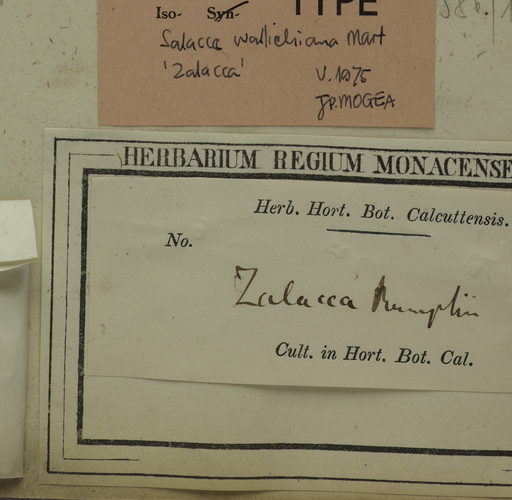 Iso- Syn- TYPE
Salacca wallichiana Mart
'Zalacca' V.1975
JP.MOGEA
HERBARIUM REGIUM MONACENSE
Herb. Hort. Bot. Calcuttensis.
No.
Zalacca Rumphii
Cult. in Hort. Bot. Cal.